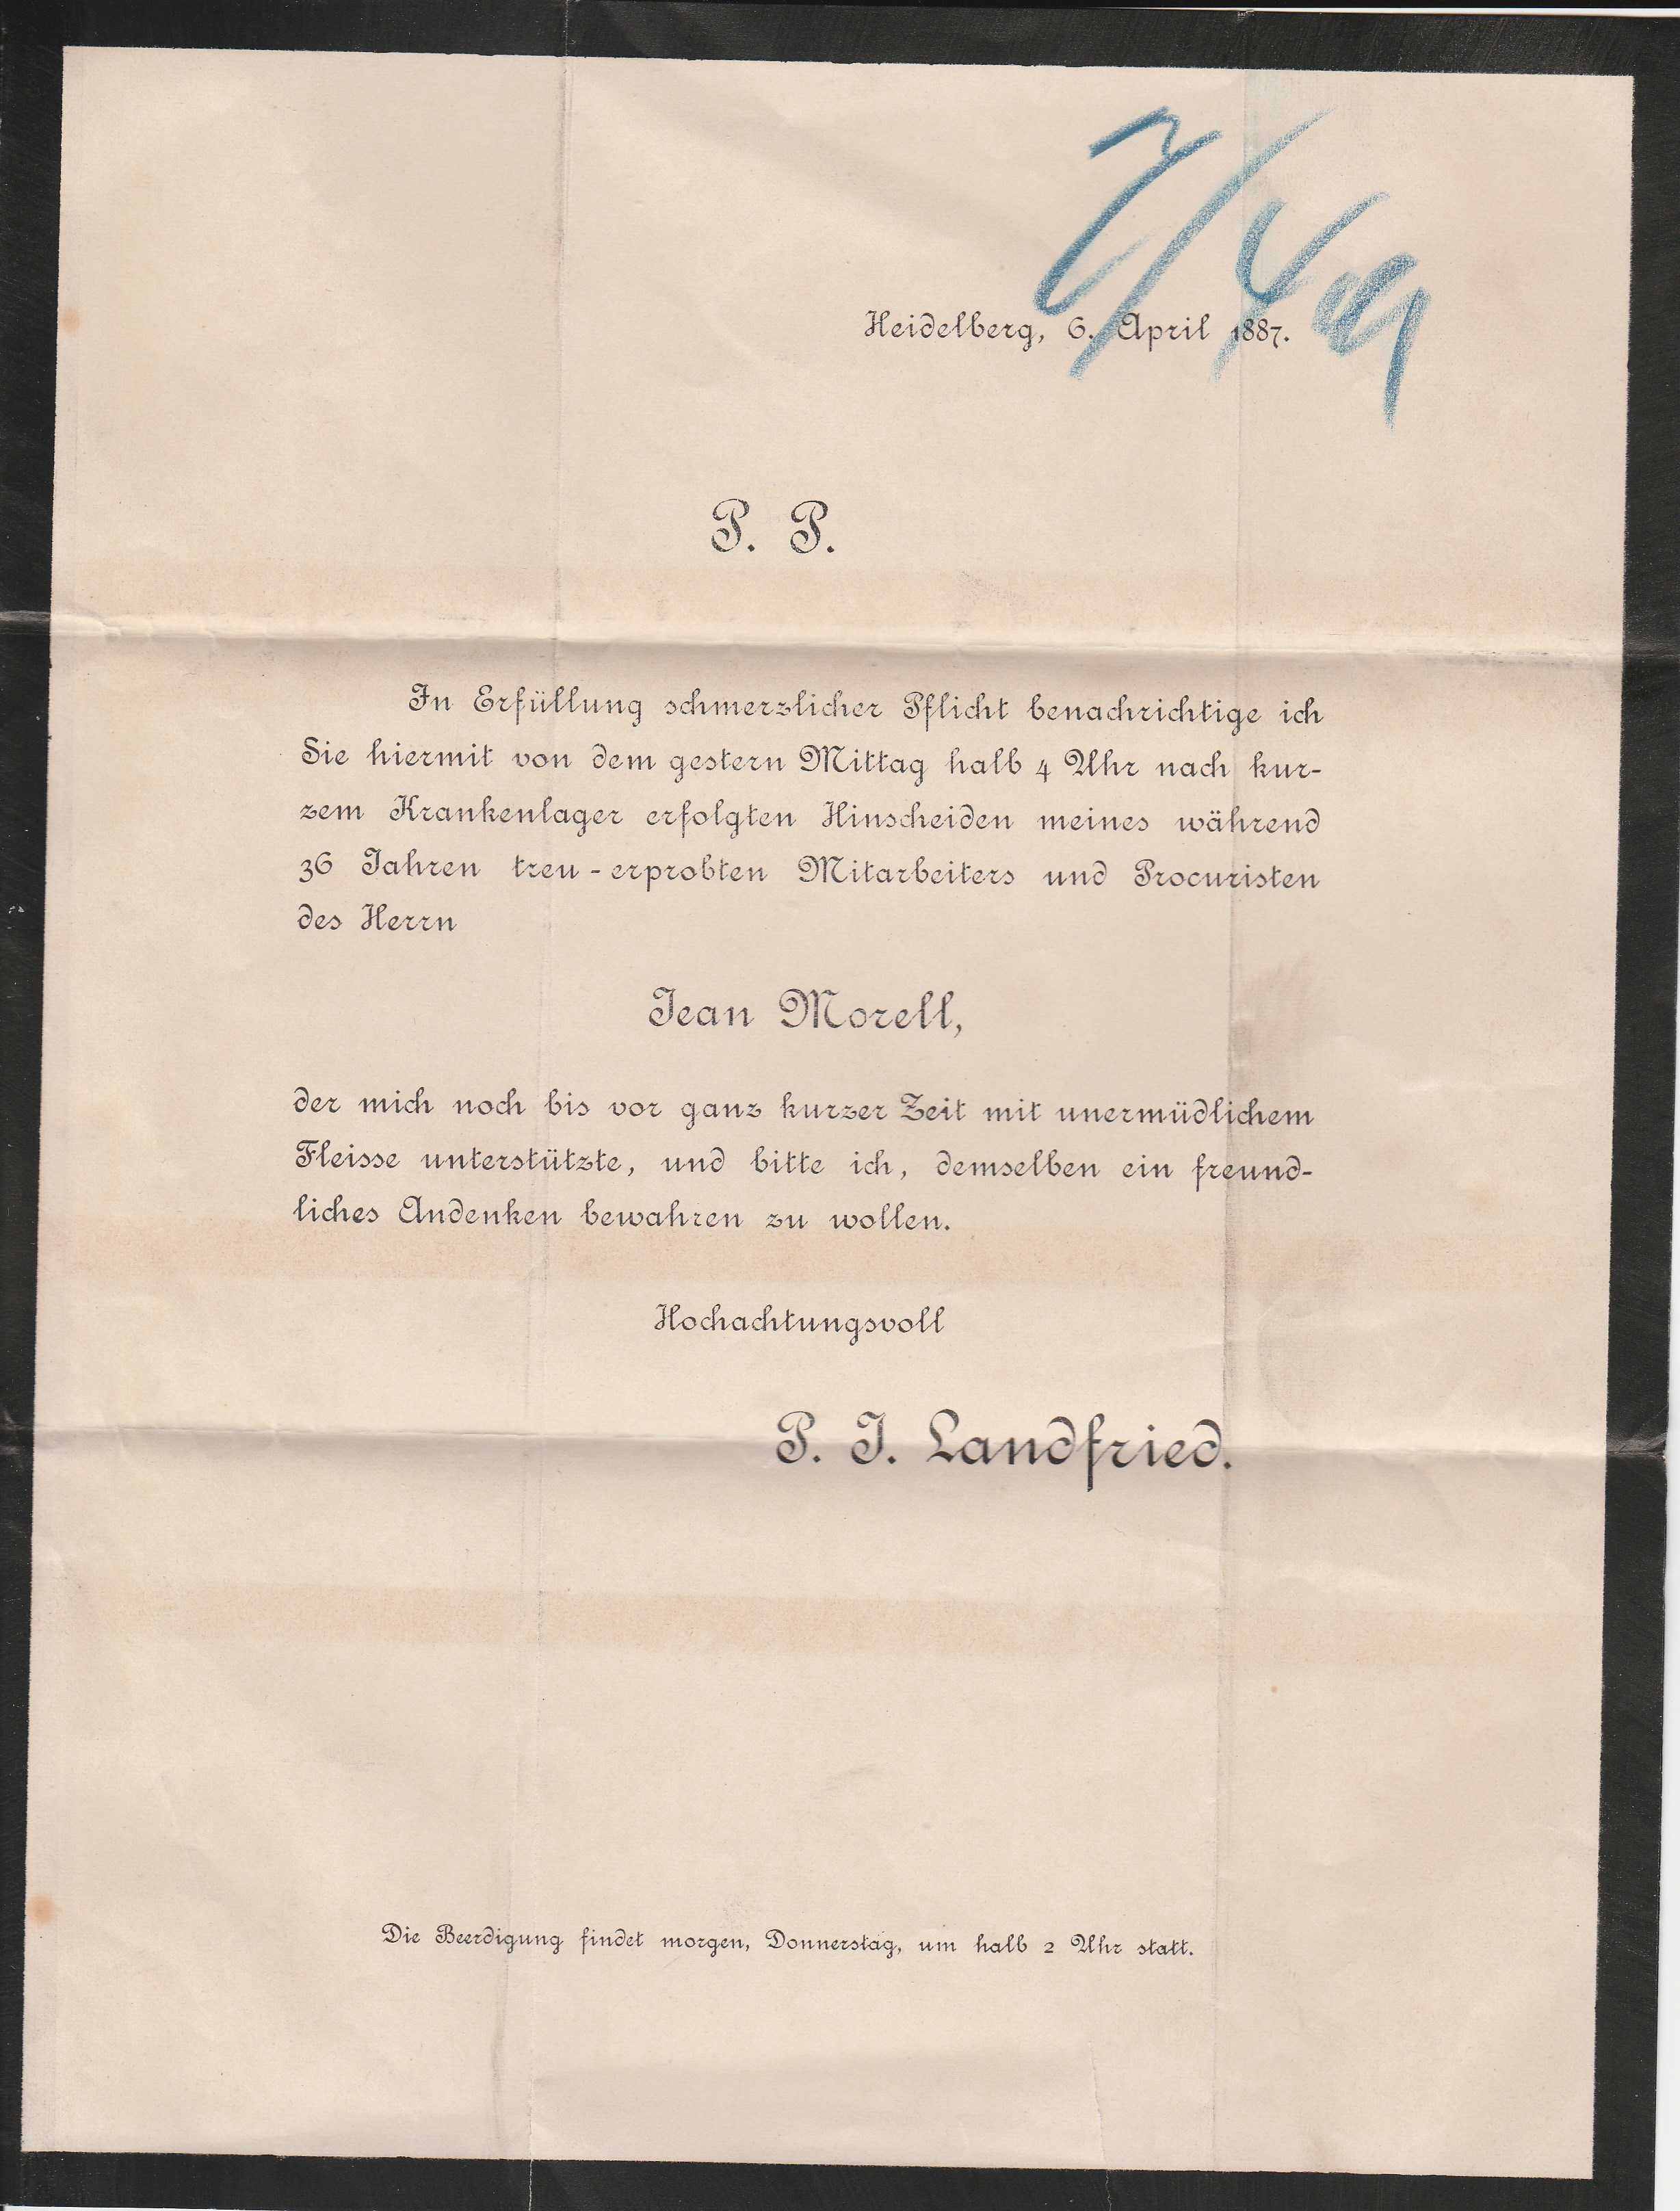 Heidelberg, 6. April 1887.
P. P.
In Erfüllung schmerzlicher Pflicht benachrichtige ich
Sie hiermit von dem gestern Mittag halb 4 Uhr nach kur-
zem Krankenlager erfolgten Hinscheiden meines während
36 Jahren treu-erprobten Mitarbeiters und Procuristen
des Herrn
Jean Morell,
der mich noch bis vor ganz kurzer Zeit mit unermüdlichem
Fleisse unterstützte, und bitte ich, demselben ein freund-
liches Andenken bewahren zu wollen.
Hochachtungsvoll
P. J. Landfried.
Die Beerdigung findet morgen, Donnerstag, um halb 2 Uhr statt.